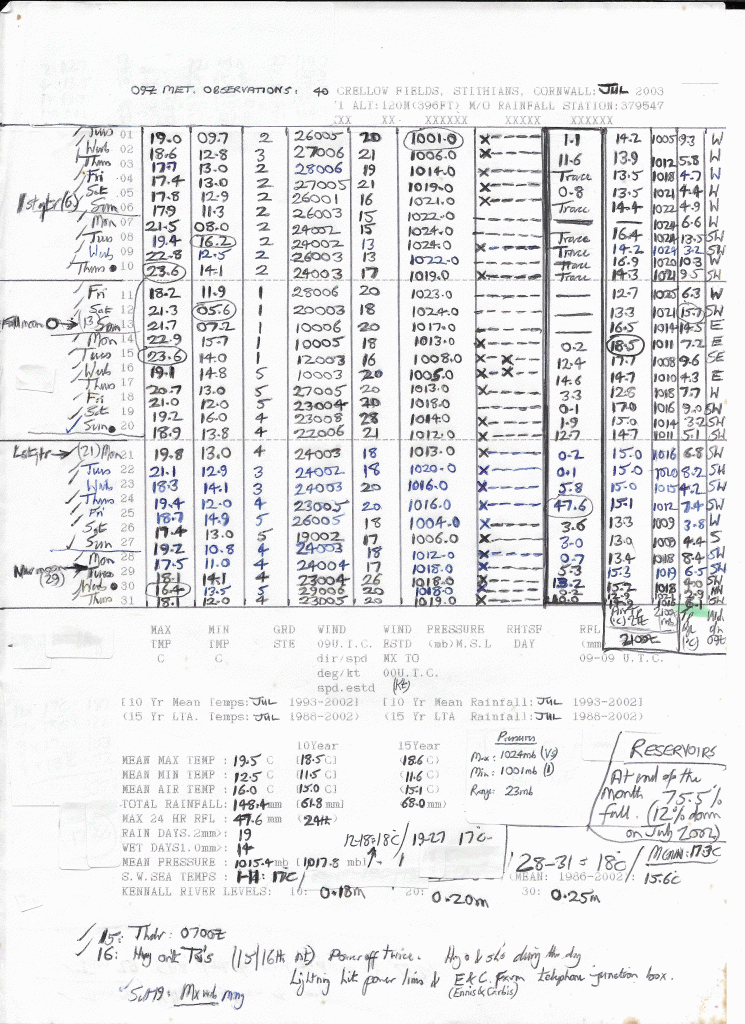 09Z MET. OBSERVATIONS: 40 CRELLOW FIELDS, STITHIANS, CORNWALL: JUL 2003
ALT:120M(396FT) M/O RAINFALL STATION:379547
XX XX- XXXXXX XXXXX XXXXXX
Tues 01 19.0 09.7 2 26005 20 1001.0 X----- 1.1 14.2 1005 9.3 W
Wed 02 18.6 12.8 3 27006 21 1006.0 X----- 11.6 13.9 1012 5.8 W
Thurs 03 17.7 13.0 2 28006 19 1014.0 Trace 13.5 1018 4.7 W
Fri 04 17.4 13.0 2 27005 21 1019.0 0.8 13.5 1021 4.4 W
1st qtr (6) Sat 05 17.8 12.9 2 26001 16 1021.0 Trace 14.4 1022 4.9 W
Sun 06 17.9 11.3 2 26003 15 1022.0
Mon 07 21.5 08.0 2 24002 15 1024.0
Tues 08 19.4 16.2 2 24002 13 1024.0
Wed 09 22.8 12.5 2 26003 13 1022.0
Thurs 10 23.6 14.1 2 24003 17 1019.0
Fri 11 18.2 11.9 1 28006 20 1023.0 12.7 1025 6.3 W
Sat 12 21.3 05.6 1 20003 18 1024.0 13.3 1021 15.7 SW
Full moon (13) Sun 13 21.7 07.2 1 10006 20 1017.0 16.5 1014 14.5 E
Mon 14 22.9 15.7 1 10005 18 1013.0 0.2 18.5 1011 7.2 E
Tues 15 23.6 14.0 1 12003 16 1008.0 12.4 17.7 1008 9.6 SE
Wed 16 19.1 14.8 5 10003 20 1005.0 14.6 14.7 1010 4.3 E
Thurs 17 20.7 13.0 5 27005 20 1013.0 3.3 12.8 1018 7.7 W
Fri 18 21.0 12.0 5 23004 20 1018.0 0.1 17.0 1016 9.0 SW
Sat 19 19.2 16.0 4 23008 28 1014.0 1.9 15.0 1014 3.2 SW
Sun 20 18.9 13.8 4 22006 21 1012.0 12.7 14.7 1011 5.1 SW
Lst qtr (21) Mon 21 19.8 13.0 4 24003 18 1013.0 X----- 0.2 15.0 1016 6.8 SW
Tues 22 21.1 12.9 3 24002 18 1020.0 X----- 0.1 15.0 1020 8.2 SW
Wed 23 18.3 14.1 3 24003 20 1016.0 X----- 5.8 15.0 1015 4.2 SW
Thurs 24 19.4 12.0 4 23005 20 1016.0 X----- 47.6 15.1 1012 7.4 SW
Fri 25 18.7 14.9 5 26005 18 1004.0 X----- 3.6 13.3 1009 3.8 W
Sat 26 17.4 13.0 5 19002 17 1006.0 X----- 3.0 13.0 1008 4.4 SW
Sun 27 19.2 10.8 4 24003 18 1012.0 X----- 0.7 13.4 1018 8.4 SW
Mon 28 17.5 11.0 4 24004 17 1018.0 X----- 5.3 15.3 1019 6.5 SW
New moon (29) Tues 29 18.1 14.1 4 23004 26 1018.0
Wed 30 16.4 13.5 5 29006 20 1018.0
Thurs 31 18.1 12.0 4 23005 20 1019.0
MAX MIN GRD WIND WIND PRESSURE RHTSF RFL 2100Z
TMP TMP STE 09U.T.C. ESTD (mb)M.S.L DAY (mm)
C C. dir/spd MX TO 09-09 U.T.C.
deg/kt 00U.T.C.
spd.estd (Kt)
[10 Yr Mean Temps: JUL 1993-2002] [10 Yr Mean Rainfall: JUL 1993-2002]
(15 Yr LTA. Temps: JUL 1988-2002) (15 Yr LTA Rainfall: JUL 1988-2002)
10Year 15Year
MEAN MAX TEMP : 19.5 C [18.5C] (18.6 C)
MEAN MIN TEMP : 12.5 C [11.5 C] (11.6 C)
MEAN AIR TEMP : 16.0 C [15.0 C] (15.1 C)
TOTAL RAINFALL: 148.4mm [61.8 mm] 68.0 mm
MAX 24 HR RFL : 47.6 mm (24th)
RAIN DAYS.2mm): 19
WET DAYS1.0mm): 14
MEAN PRESSURE : 1015.4 mb [1017.8 mb]
S.W.SEA TEMPS : 1-11: 17°C/ 12-18: 18°C / 19-27 17°C 28-31 = 18°C / (MEAN: 1986-2002): 15.6C
KENNALL RIVER LEVELS: 10: 0.18m 20: 0.20m 30: 0.25m
Pressures
Max: 1024mb
Min: 1001mb (1)
Range: 23mb
RESERVOIRS
At end of the
month 75.5%
full. (12% down
on July 2002)
15: Thdr: 0700Z
16: Hvy (15/16th nt) Power off twice. during the day
Lightning hit power lines & E&C. Farm telephone junction box.
(Ennis & Carbis)
Sat 19: